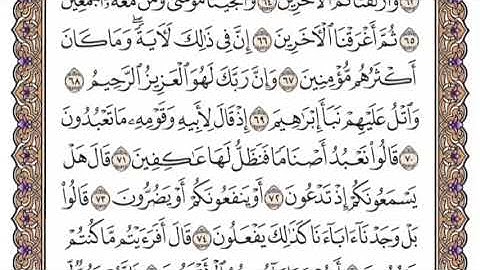 وَأَزْلَفْنَا ثَمَّ ٱلْـَٔاخَرِينَ ٦٤ وَأَنجَيْنَا مُوسَىٰ وَمَن مَّعَهُۥٓ أَجْمَعِينَ
٦٥ ثُمَّ أَغْرَقْنَا ٱلْـَٔاخَرِينَ ٦٦ إِنَّ فِى ذَٰلِكَ لَـَٔايَةً ۖ وَمَا كَانَ
أَكْثَرُهُم مُّؤْمِنِينَ ٦٧ وَإِنَّ رَبَّكَ لَهُوَ ٱلْعَزِيزُ ٱلرَّحِيمُ ٦٨
وَٱتْلُ عَلَيْهِمْ نَبَأَ إِبْرَٰهِيمَ ٦٩ إِذْ قَالَ لِأَبِيهِ وَقَوْمِهِۦ مَا تَعْبُدُونَ
٧٠ قَالُوا۟ نَعْبُدُ أَصْنَامًا فَنَظَلُّ لَهَا عَـٰكِفِينَ ٧١ قَالَ هَلْ
يَسْمَعُونَكُمْ إِذْ تَدْعُونَ ٧٢ أَوْ يَنفَعُونَكُمْ أَوْ يَضُرُّونَ ٧٣ قَالُوا۟
بَلْ وَجَدْنَآ ءَابَآءَنَا كَذَٰلِكَ يَفْعَلُونَ ٧٤ قَالَ أَفَرَءَيْتُم مَّا كُنتُمْ